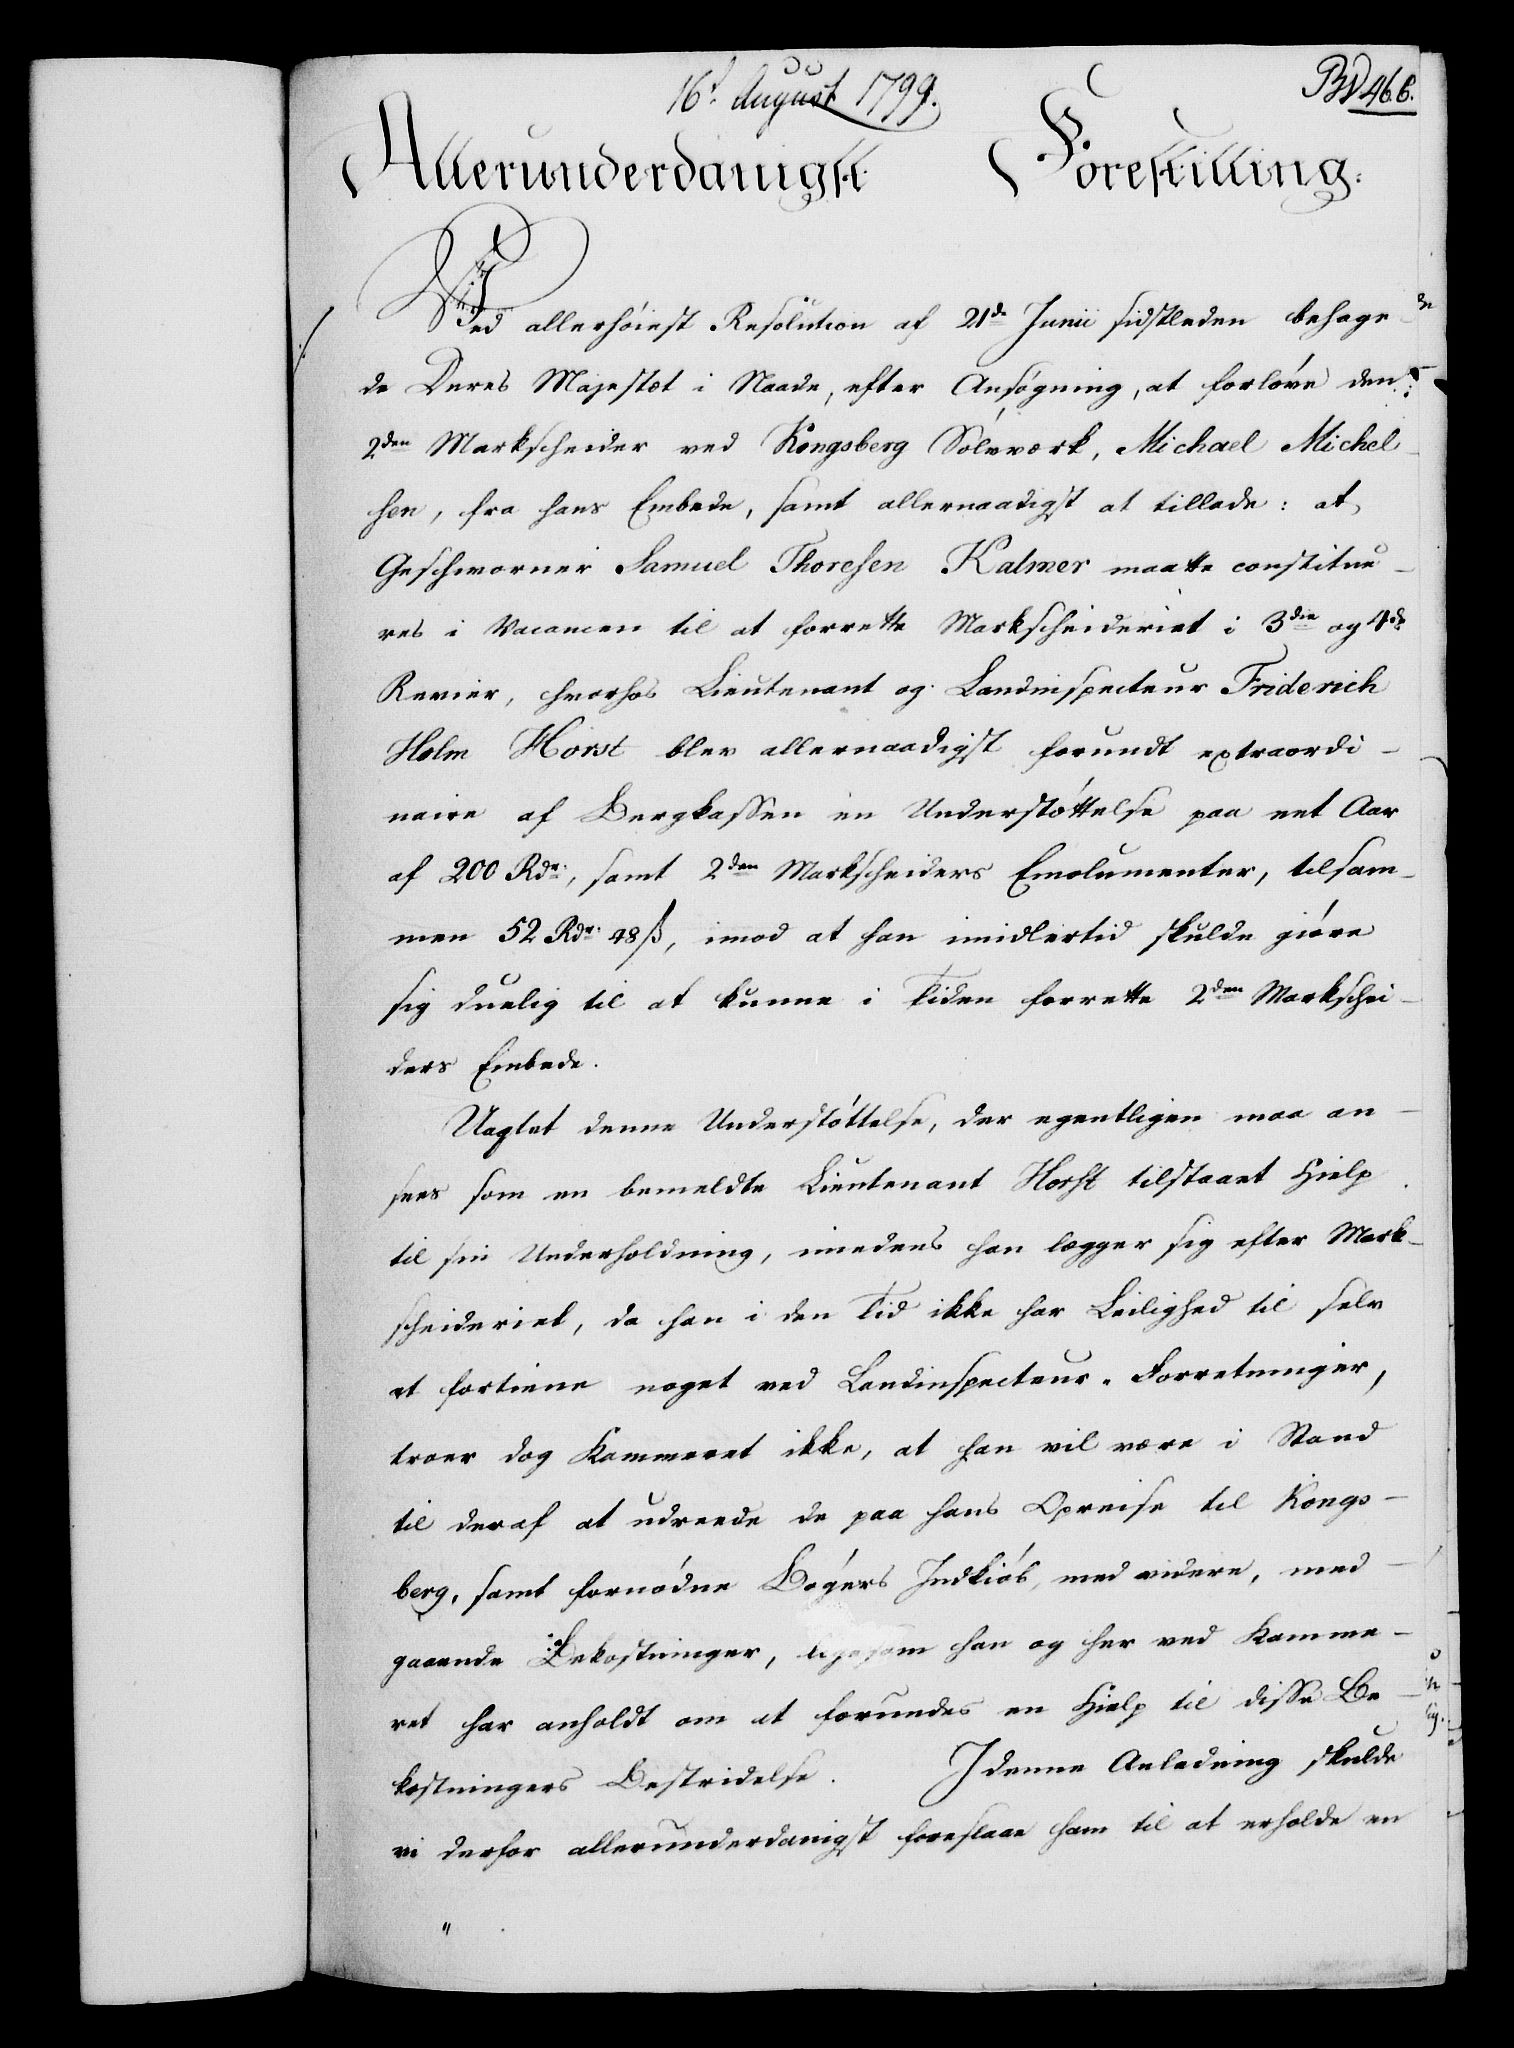 16d August 1799.
BN 466.
Allerunderdanigst Forestilling:
Ved allerhöiest Resolution af 21de Junii sidstleden behage
de Deres Majestæt i Naade, efter Ansögning, at forlöve den
2den Markscheider ved Kongsberg Sölvværk, Michael Michel
sen, fra hans Embede, samt allernaadigst at tillade: at
Geschworner Samuel Thoresen Kalmer maatte constitue-
res i Vacancen til at forrette Markscheideriet i 3die og 4de
Revier, hvorhos Lieutenant og Landinspecteur Friderich
Holm Horst blev allernaadigst forundt extraordi-
naire af Bergkassen en Understöttelse paa eet Aar
af 200 Rdr., samt 2den Markscheiders Emolumenter, tilsam-
men 52 Rdr. 48 ß, imod at han imidlertid skulde giöre
sig duelig til at kunne i Tiden forrette 2den Markschei-
ders Embede.
Uagtet denne Understöttelse, der egentligen maa an-
sees som en bemeldte Lieutenant Horst tilstaaet Hielp
til sin Underholdning, imedens han lægger sig efter Mark-
scheideriet, da han i den Tid ikke har Leilighed til selv
at fortiene noget ved Landinspecteur-Forretninger,
troer dog Kammeret ikke, at han vil være i Stand
til deraf at udreede de paa hans Opreise til Kongs-
berg, samt fornödne Bögers Indkiöb, med videre, med-
gaaende Bekostninger, ligesom han og her ved Kamme-
ret har anholdt om at forundes en Hielp til disse Be-
kostningers Bestridelse. I denne Anledning skulde
vi derfor allerunderdanigst foreslaae ham til at erholde en
"